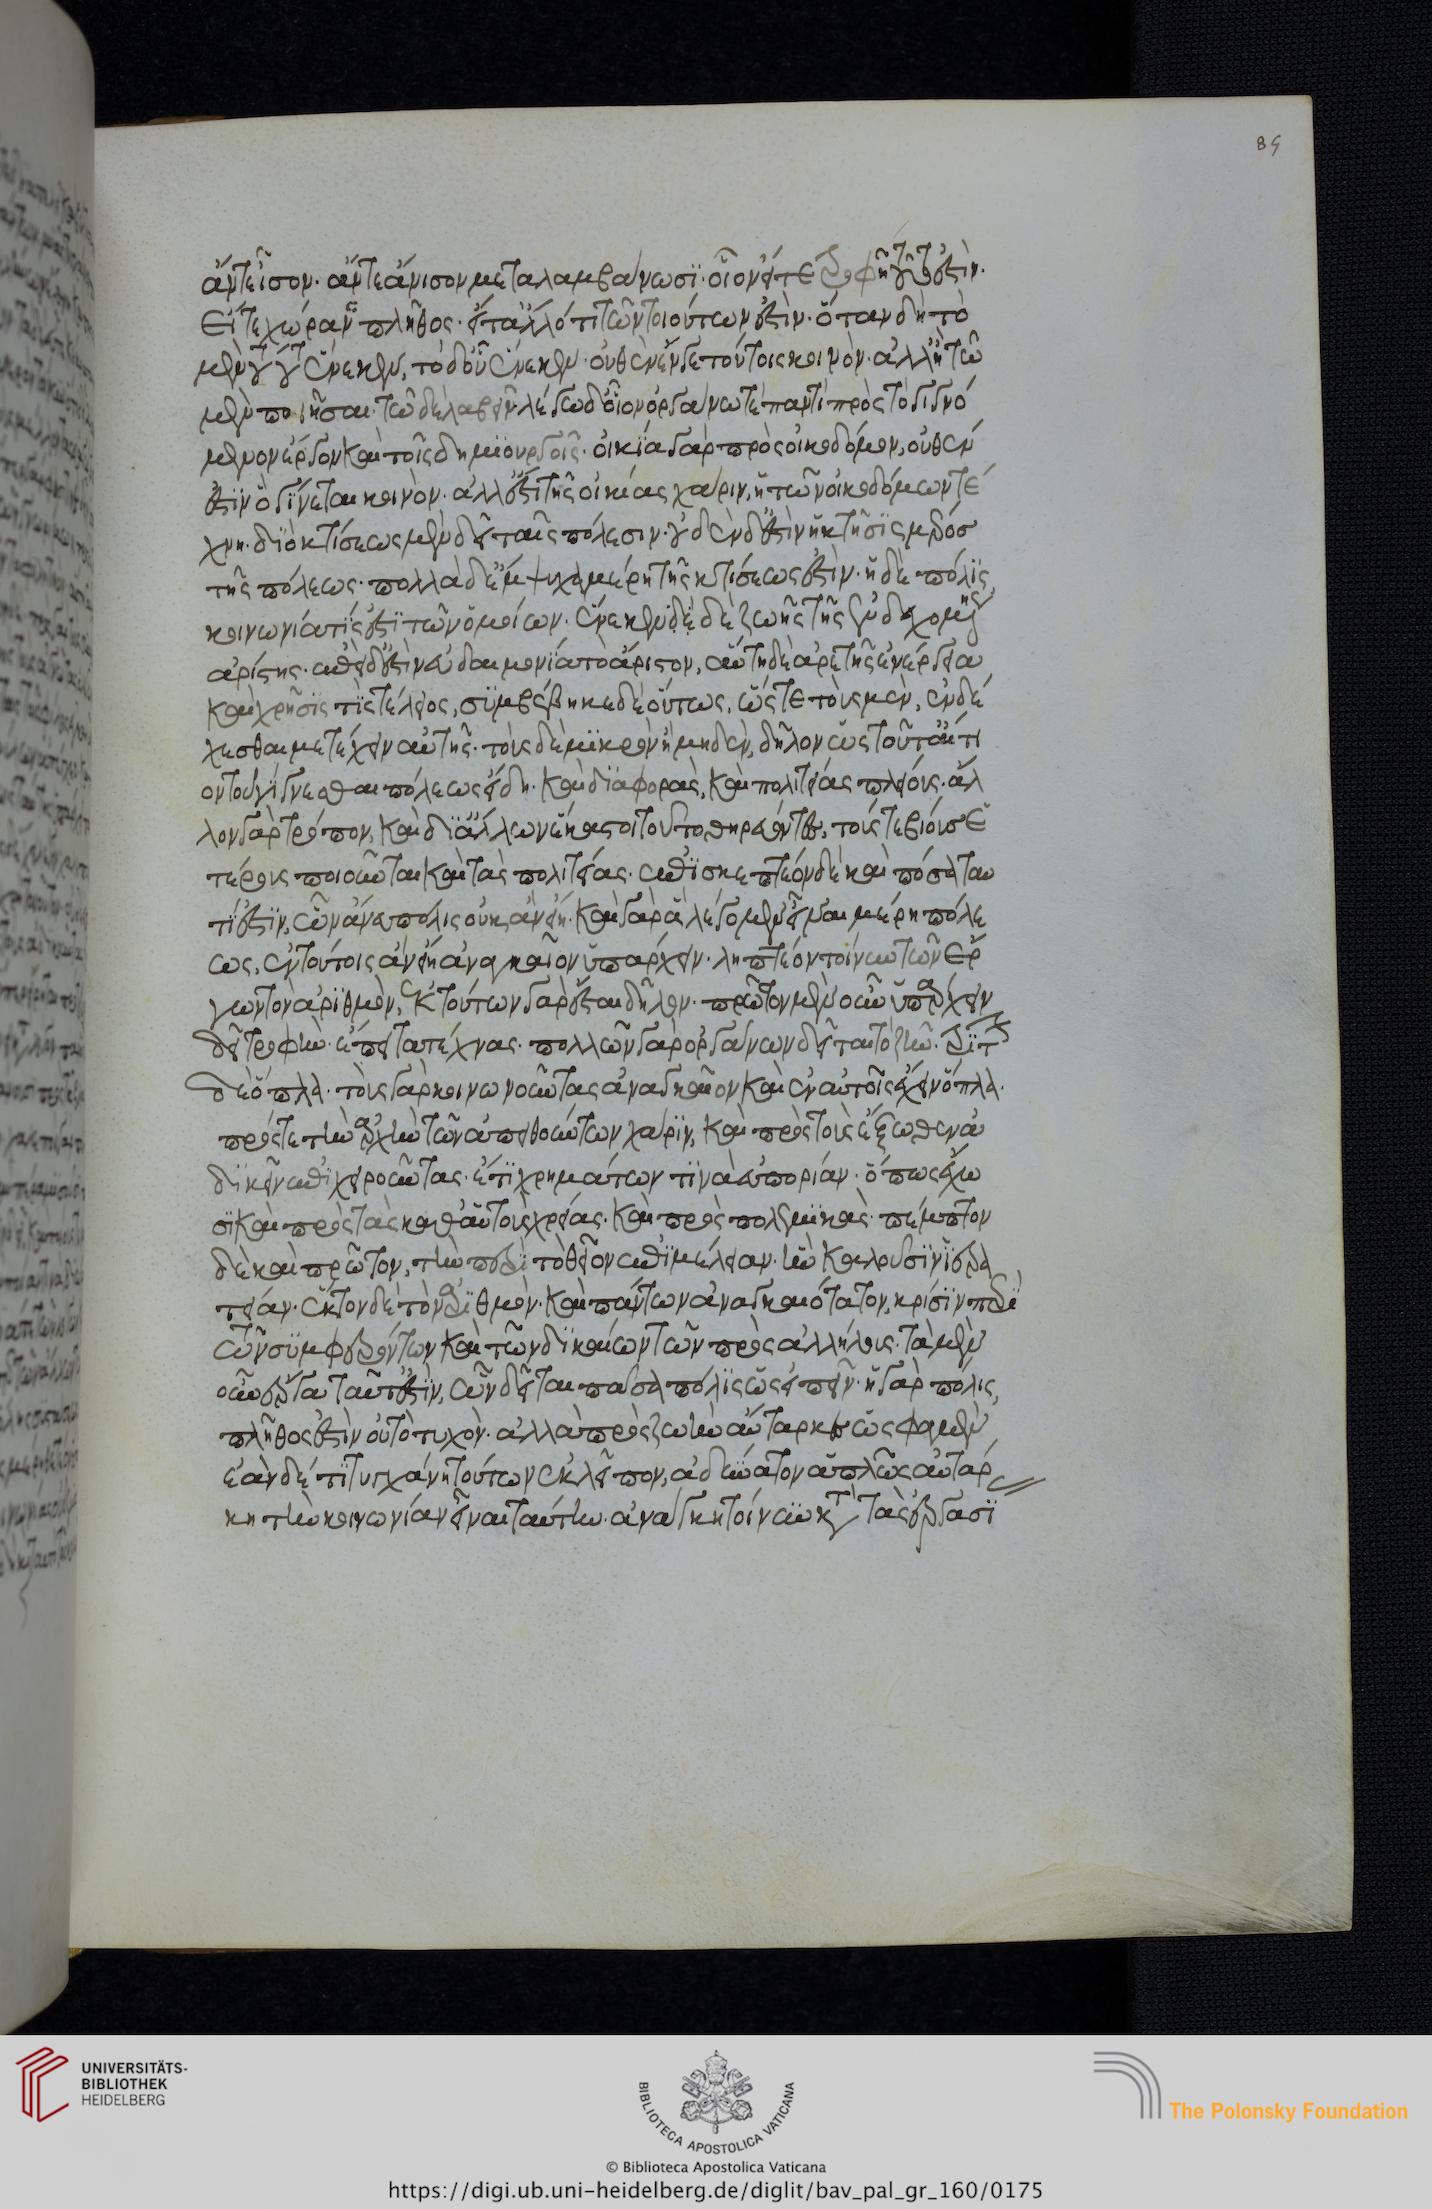 ἄν τε ἴσον· ἄν τε ἄνισον μεταλαμβάνωσϊ· οἷον εἴτε τροφὴ τοῦτο ἐστὶν·
εἴτε χώρα ἢ πλῆθος· εἴτ' ἄλλό τι τῶν τοιούτων ἐστὶν· ὅταν δὴ τὸ
μὲν τούτου ἕνεκεν, τὸ δ' οὗ ἕνεκεν· οὐθὲν ἔν γε τούτοις κοινὸν· ἀλλ' ἢ τῶ
μὲν ποιῆσαι· τῶ δὲ λαβεῖν λέγω δ' οἷον ὀργάνω τὲ παντὶ πρὸς τὸ γιγνό
μενον ἔργον καὶ τοῖς δημϊουργοῖς· οἰκία γὰρ πρὸς οἰκοδόμον, οὐθέν
ἐστϊν ὃ γΐνεται κοινὸν· ἀλλ' ἔστϊ τῆς οἰκίας χάριν, ἡ τῶν οἰκοδόμων τέ
χνη· διὸ κτίσεως μὲν δεῖ ταῖς πόλεσιν· οὐδὲν δ' ἐστὶν ἡ κτῆσϊς μέρος
τῆς πόλεως· πολλὰ δ' ἔμψυχα μέρη τῆς κτίσεως ἐστὶν· ἡ δὲ πόλϊς
κοινωνία τίς ἐστϊ τῶν ὁμοίων· ἕνεκεν δὲ δὲ ζωῆς τῆς ἐνδεχομένης
ἀρίστης· ἐπεὶ δ' ἐστὶν εὐδαιμονία τὸ ἄριστον, αὕτη δὲ ἀρετῆς ἐνέργεια
καὶ χρῆσϊς τὶς τέλειος, συμβέβηκε δὲ οὕτως, ὥστε τοὺς μὲν, ἐνδέ
χεσθαι μετέχειν αὐτῆς· τοὺς δὲ μϊκρὸν ἢ μηδὲν, δῆλον ὡς τοῦτ' αἴτι
ον τοῦ γίγνεσθαι πόλεως εἴδη· καὶ δϊαφορὰς, καὶ πολιτείας πλείους· ἄλ
λον γὰρ τρόπον, καὶ δϊ' ἄλλων ἕκαστοι τοῦτο θηρεύοντες, τούς τε βίους ἑ
τέρους ποιοῦνται καὶ τὰς πολιτείας· ἐπισκεπτέον δὲ καὶ πόσα ταυ
τΐ ἐστϊν, ὧν ἄνευ πόλις οὐκ ἂν εἴη· καὶ γὰρ ἃ λέγομεν εἶναι μέρη πόλε
ως, ἐν τούτοις ἂν εἴη ἀναγκαῖον ὑπάρχειν· ληπτέον τοίνυν τῶν ἔρ
γων τὸν ἀρϊθμὸν, ἐκ τούτων γὰρ ἔσται δῆλον· πρῶτον μὲν οὖν ὑπάρχειν
δεῖ τροφὴν· ἔπειτα τέχνας· πολλῶν γὰρ ὀργάνων δεῖται τὸ ζῆν· τρίτον
δὲ ὅπλα· τοὺς γὰρ κοινωνοῦντας ἀναγκαῖον καὶ ἐν αὐτοῖς ἔχειν ὅπλα·
πρός τε τὴν ἀρχὴν τῶν ἀπειθούντων χάρϊν, καὶ πρὸς τοὺς ἔξωθεν ἀ
δϊκεῖν ἐπϊχειροῦντας· ἔτϊ χρημάτων τϊνὰ εὐπορίαν· ὅπως ἔχω
σϊ καὶ πρὸς τὰς καθ' αὑτοὺς χρείας· καὶ πρὸς πολεμϊκὰς· πέμπτον
δὲ καὶ πρῶτον, τὴν περὶ τὸ θεῖον ἐπιμέλειαν· ἣν καλουσϊν ἱερα
τείαν· ἕκτον δὲ τὸν ἀρϊθμὸν· καὶ πάντων ἀναγκαιότατον, κρίσϊν περὶ
τῶν συμφερόντων καὶ τῶν δϊκαίων τῶν πρὸς ἀλλήλους· τὰ μὲν
οὖν ἔργα ταῦτ' ἐστὶν, ὧν δεῖται πᾶσα πόλϊς ὡς εἰπεῖν· ἡ γὰρ πόλις,
πλῆθος ἐστὶν οὐ τὸ τυχὸν· ἀλλὰ πρὸς ζωὴν αὔταρκες ὥς φαμεν,
ἐὰν δέ τϊ τυγχάνη τούτων ἐκλεῖπον, ἀδύνατον ἁπλῶς αὐτάρ
κη τὴν κοινωνίαν εἶναι ταύτην· ἀνάγκη τοίνυν κατὰ τὰς ἐργασϊ
89
UNIVERSITÄTS-
BIBLIOTHEK
HEIDELBERG
BIBLIOTECA APOSTOLICA VATICANA
The Polonsky Foundation
© Biblioteca Apostolica Vaticana
https://digi.ub.uni-heidelberg.de/diglit/bav_pal_gr_160/0175